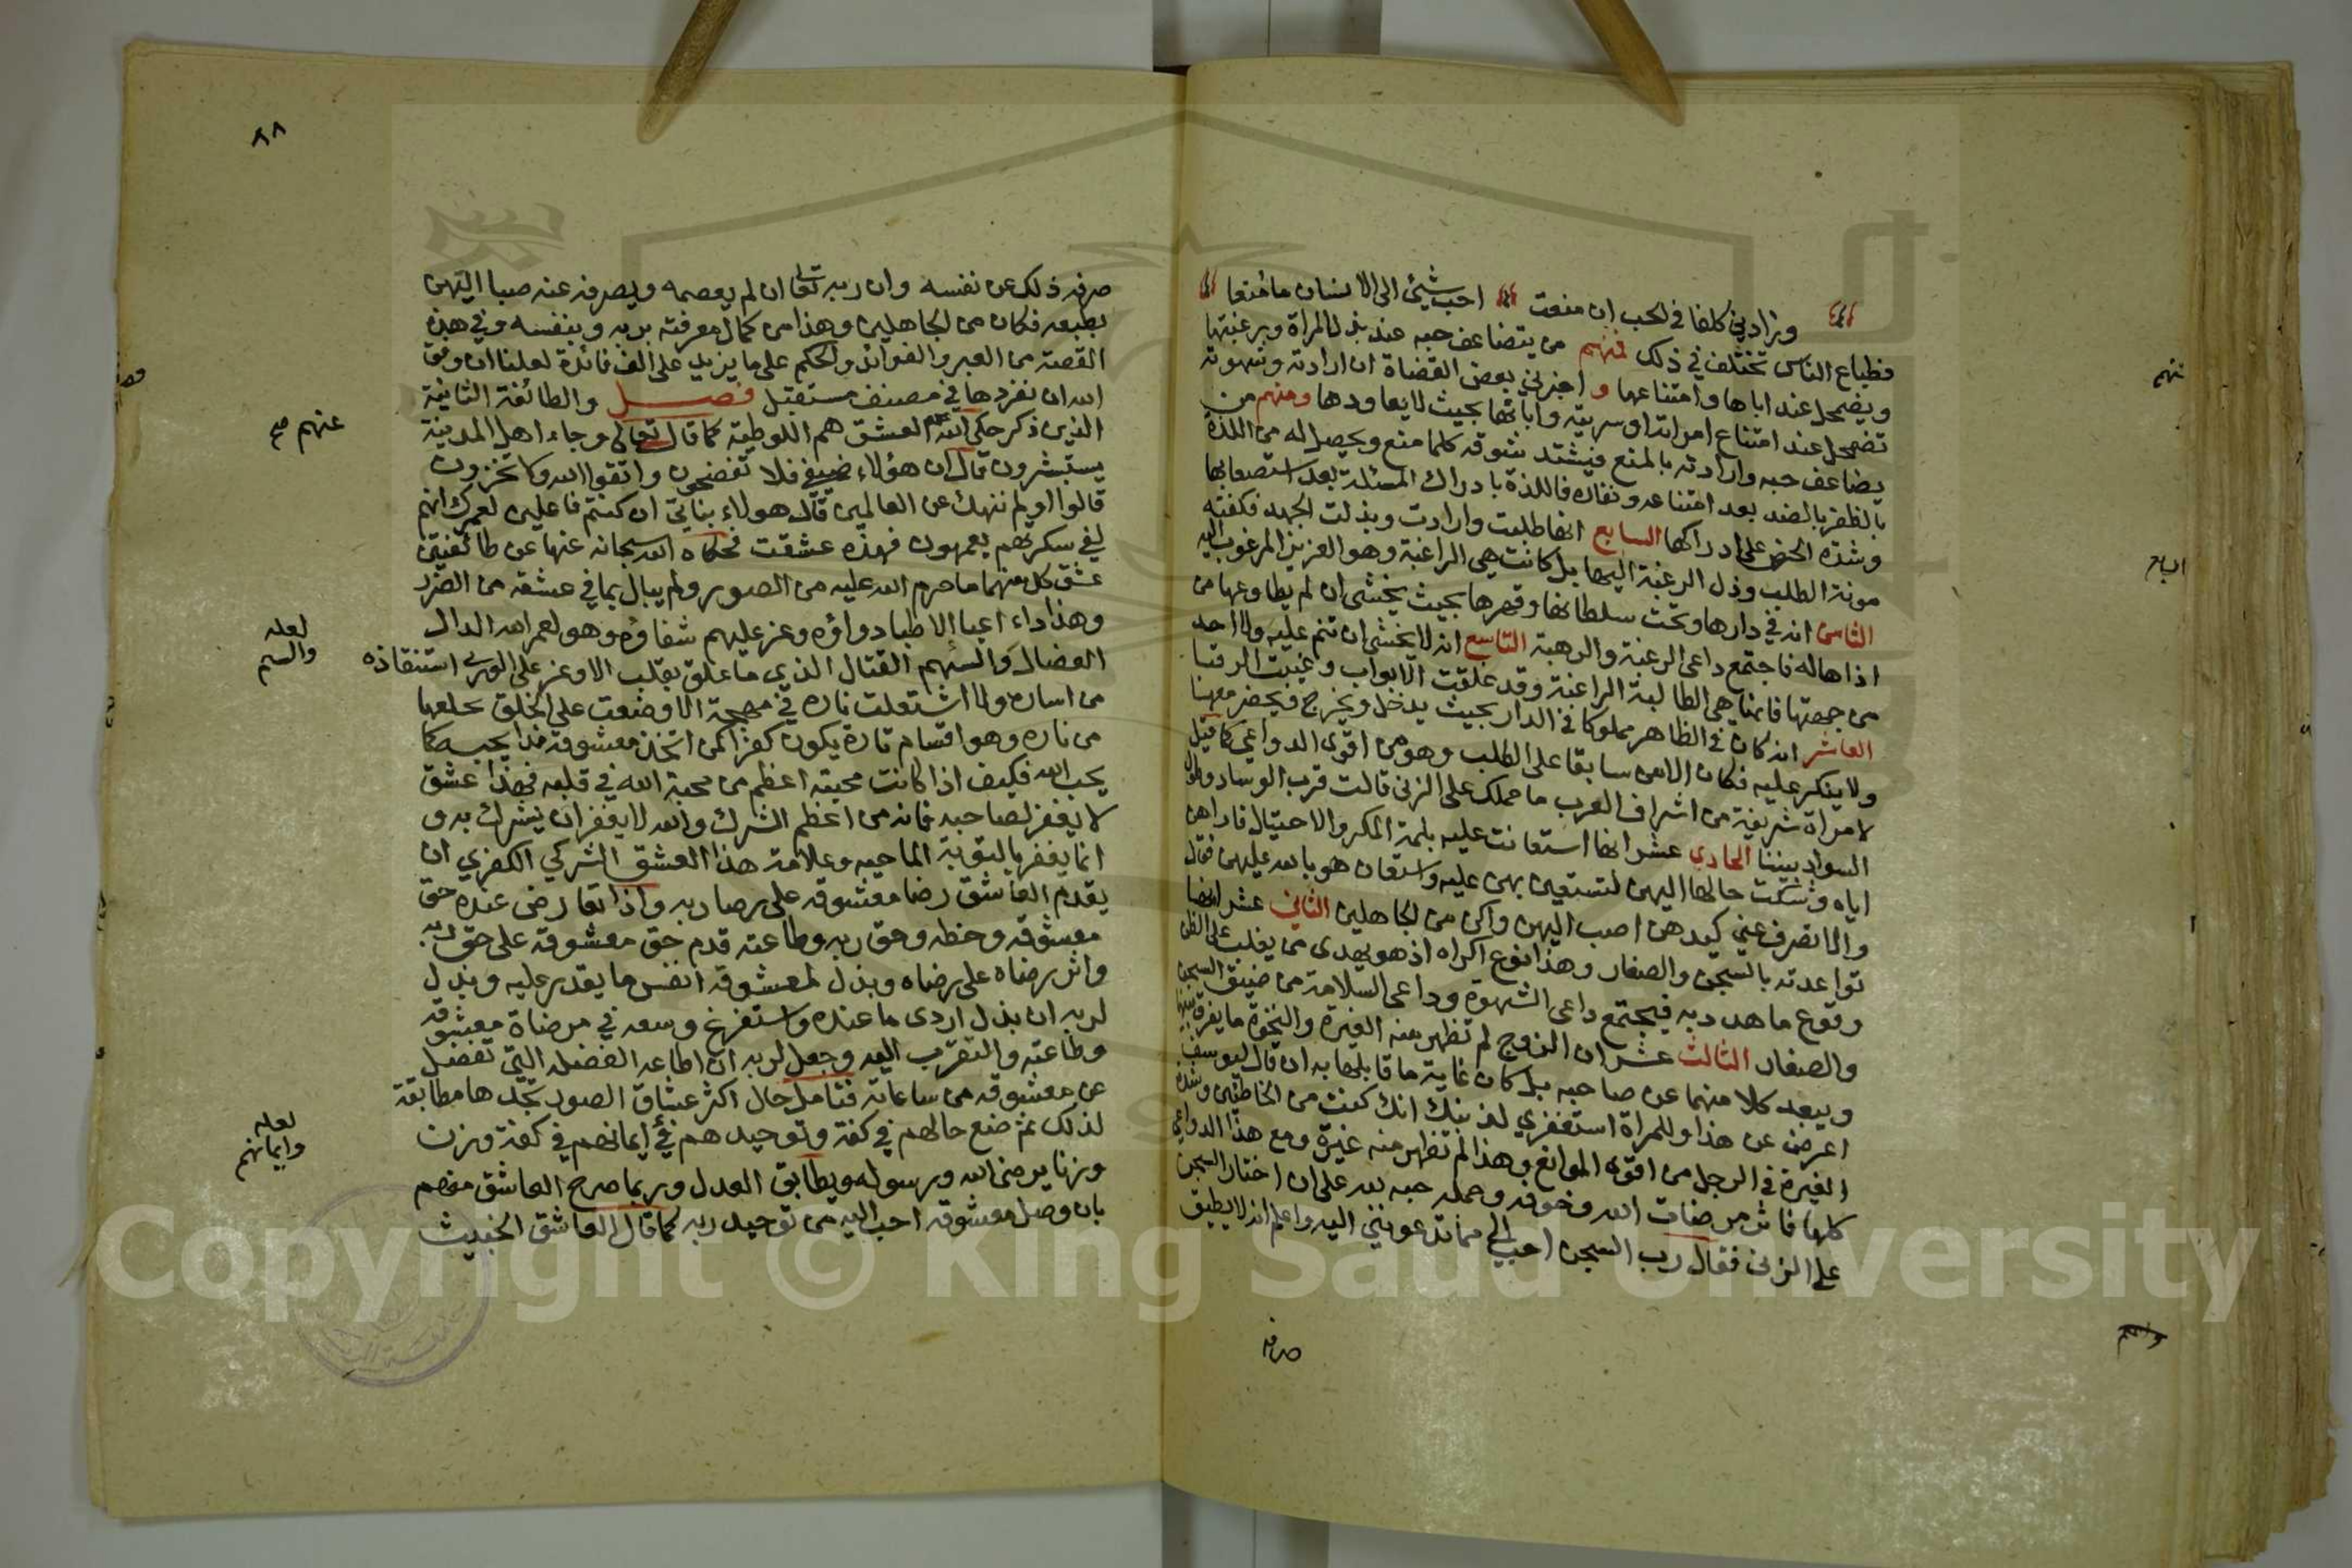 وزادني كلفا في الحب ان منعت احب شيئ الى الانسان ما منعا
فطباع الناس تختلف في ذلك فمنهم من يتضاعف حبه عند بذل المراة ورغبتها
ويضمحل عند اباها وامتناعها و اخبرني بعض القضاة ان ارادته وشهوته
تضمحل عند امتناع امراته او سريته واباتها بحيث لا يعاودها ومنهم من
يضاعف حبه وارادته بالمنع فيشتد شوقه كلما منع ويحصل له من اللذة
بالظفر بالضد بعد امتناعه ونفاره فاللذة بادراك المسئلة بعد استصعابها
وشدة الحرص على ادراكها السابع انها طلبت وارادت وبذلت الجهد فكفته
مونة الطلب وذل الرغبة اليها بل كانت هي الراغبة وهو العزيز المرغوب اليه
الثامن انه في دارها وتحت سلطانها وقهرها بحيث يخشى ان لم يطاوعها من
اذاها له فاجتمع داعى الرغبة والرهبة التاسع انه لا يخشى ان تنم عليه ولا احد
من جهتها فانها هي الطالبة الراغبة وقد غلقت الابواب وغيبت الرقبا
العاشر انه كان في الظاهر مملوكا في الدار بحيث يدخل ويخرج فيحضر معها
ولا ينكر عليه فكان الامن سابقا على الطلب وهو من اقوى الدواعي كما قيل
لامراة شريفة من اشراف العرب ما حملك على الزنى قالت قرب الوساد وطول
السواد بيننا الحادي عشر انها استعانت عليه بلمة المكر والاحتيال فاراهن
اياه وشكت حالها اليهن لتستعين بهن عليه واستعان هو بالله عليهن فقال
والا تصرف عني كيدهن اصب اليهن واكن من الجاهلين الثاني عشر انها
تواعدته بالسجن والصغار وهذا نوع اكراه اذ هو يهدى ممن يغلب على الظن
وقوع ما هدد به فيجتمع داعى الشهوة وداعى السلامة من ضيق السجن
والصغار الثالث عشر ان الزوج لم تظهر منه الغيرة والنخوة ما يفرق بينهما
ويبعد كلا منهما عن صاحبه بل كان غاية ما قابلها به ان قال ليوسف
اعرض عن هذا وللمراة استغفري لذنبك انك كنت من الخاطئين وشدة
الغيرة في الرجل من اقوى الموانع وهذا لم تظهر منه غيرة ومع هذا الدواعي
كلها فاثر مرضات الله وخوفه وحمله حبه لله على ان اختار السجن
على الزنى فقال رب السجن احب الي مما تدعونني اليه واعلم انه لا يطيق
صرف
٨٨
صرف ذلك عن نفسه وان ربه تعا ان لم يعصمه ويصرف عنه صبا اليهن
بطبعه فكان من الجاهلين وهذا من كمال معرفته بربه وبنفسه وفي هذه
القصة من العبر والفوائد والحكم على ما يزيد على الف فائدة لعلنا ان وفق
الله ان نفردها في مصنف مستقبل فصل والطائفة الثانية
الذين ذكر حكى الله العشق هم اللوطية كما قال تعالى وجاء اهل المدينة
يستبشرون قال ان هؤلاء ضيفي فلا تفضحون واتقوا الله ولا تخزون
قالوا اولم ننهك عن العالمين قال هولاء بناتي ان كنتم فاعلين لعمرك انهم
لفي سكرتهم يعمهون فهذه عشقت فحكاه الله سبحانه عنها عن طائفتين
عشق كل منهما ما حرم الله عليه من الصور ولم يبال بما في عشقه من الضرر
وهذا داء اعيا الاطبا دواؤه وعز عليهم شفاؤه وهو لعمر الله الدال
العضال والسهم القتال الذي ما علق بقلب الا وعز على الورى استنقاذه
من اساره ولا اشتعلت ناره في مهجة الا وضعت على الخلق خلعها
من ناره وهو اقسام تارة يكون كفرا لمن اتخذ معشوقه ندا يحبه كما
يحب الله فكيف اذا كانت محبته اعظم من محبة الله في قلبه فهذا عشق
لا يغفر لصاحبه فانه من اعظم الشرك والله لا يغفر ان يشرك به و
انما يغفر بالتوبة الماحيه وعلامة هذا العشق الشركي الكفري ان
يقدم العاشق رضا معشوقه على رضا ربه واذا تعارض عنده حق
معشوقه وحظه وحق ربه وطاعته قدم حق معشوقه على حق ربه
واثر رضاه على رضاه وبذل لمعشوقه انفس ما يقدر عليه وبذل
لربه ان بذل اردى ما عنده واستفرغ وسعه في مرضاة معشوقه
وطاعته والتقرب اليه وجعل لربه ان اطاعه الفضلة التي تفضل
عن معشوقه من ساعاته فتامل حال اكثر عشاق الصور تجدها مطابقة
لذلك ثم ضع حالهم في كفة وتوحيدهم في ايمانهم في كفة وزن
وزنا يرضى الله ورسوله ويطابق العدل وربما صرح العاشق منهم
بان وصل معشوقه احب اليه من توحيد ربه كما قال العاشق الخبيث
عنهم صح
لعله
والسهم
لعله
وايمانهم
Copyright © King Saud University